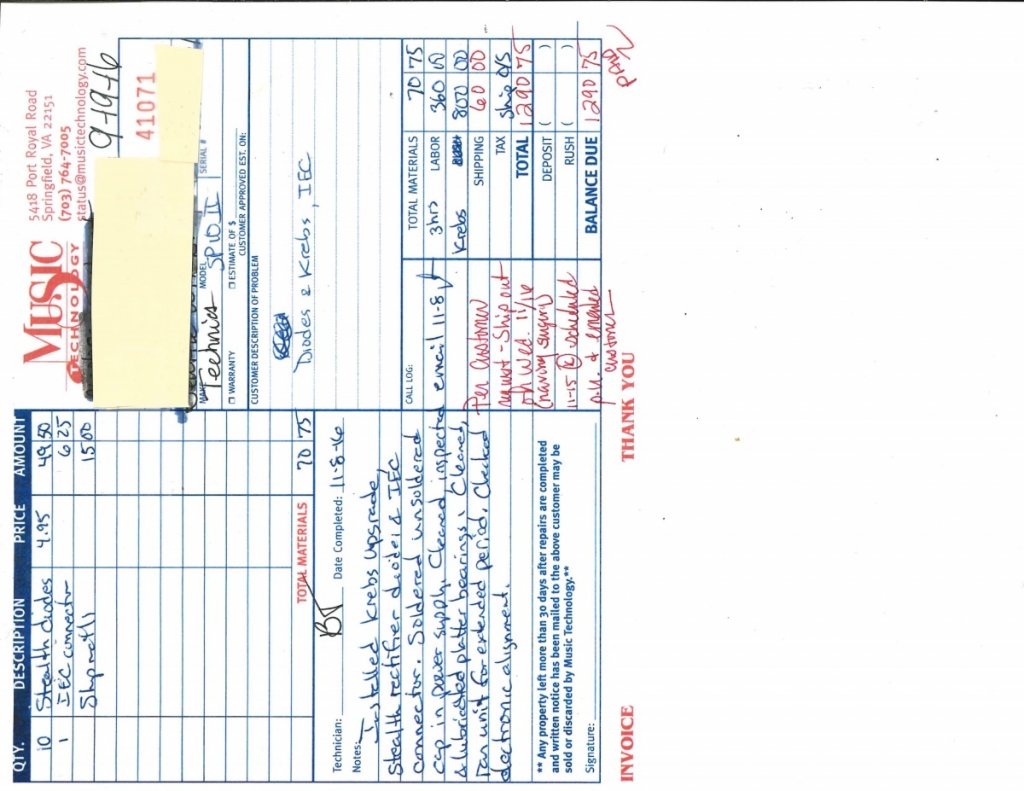 MUSIC
TECHNOLOGY
5418 Port Royal Road
Springfield, VA 22151
(703) 764-7005
status@musictechnology.com
9-19-16
41071
MAKE Technics MODEL SP10 II SERIAL #
WARRANTY ESTIMATE OF $
CUSTOMER APPROVED EST. ON:
CUSTOMER DESCRIPTION OF PROBLEM
Diodes & Krebs, IEC
QTY. DESCRIPTION PRICE AMOUNT
10 Stealth diodes 4.95 49 50
1 IEC connector 6 25
Ship matls 15 00
TOTAL MATERIALS 70 75
Technician: BT Date Completed: 11-8-16
Notes: Installed Krebs upgrade,
Stealth rectifier diodes & IEC
connector. Soldered unsoldered
cap in power supply. Cleaned, inspected
& lubricated platter bearings. Cleaned,
ran unit for extended period. Checked
electronic alignment.
** Any property left more than 30 days after repairs are completed
and written notice has been mailed to the above customer may be
sold or discarded by Music Technology.**
Signature:
CALL LOG:
email 11-8
Per customer
request - Ship out
on Wed. 11/16
(having surgery)
11-15 scheduled
p.u. & emailed
customer
TOTAL MATERIALS 70 75
3 hrs LABOR 360 00
Krebs 800 00
SHIPPING 60 00
TAX Ship o/s
TOTAL 1290 75
DEPOSIT ( )
RUSH ( )
BALANCE DUE 1290 75
paid
INVOICE THANK YOU